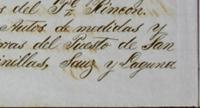 s del Pe Rincon.
Autos de medidas y
rras del Puesto de San
inillas, Sauz y Laguna